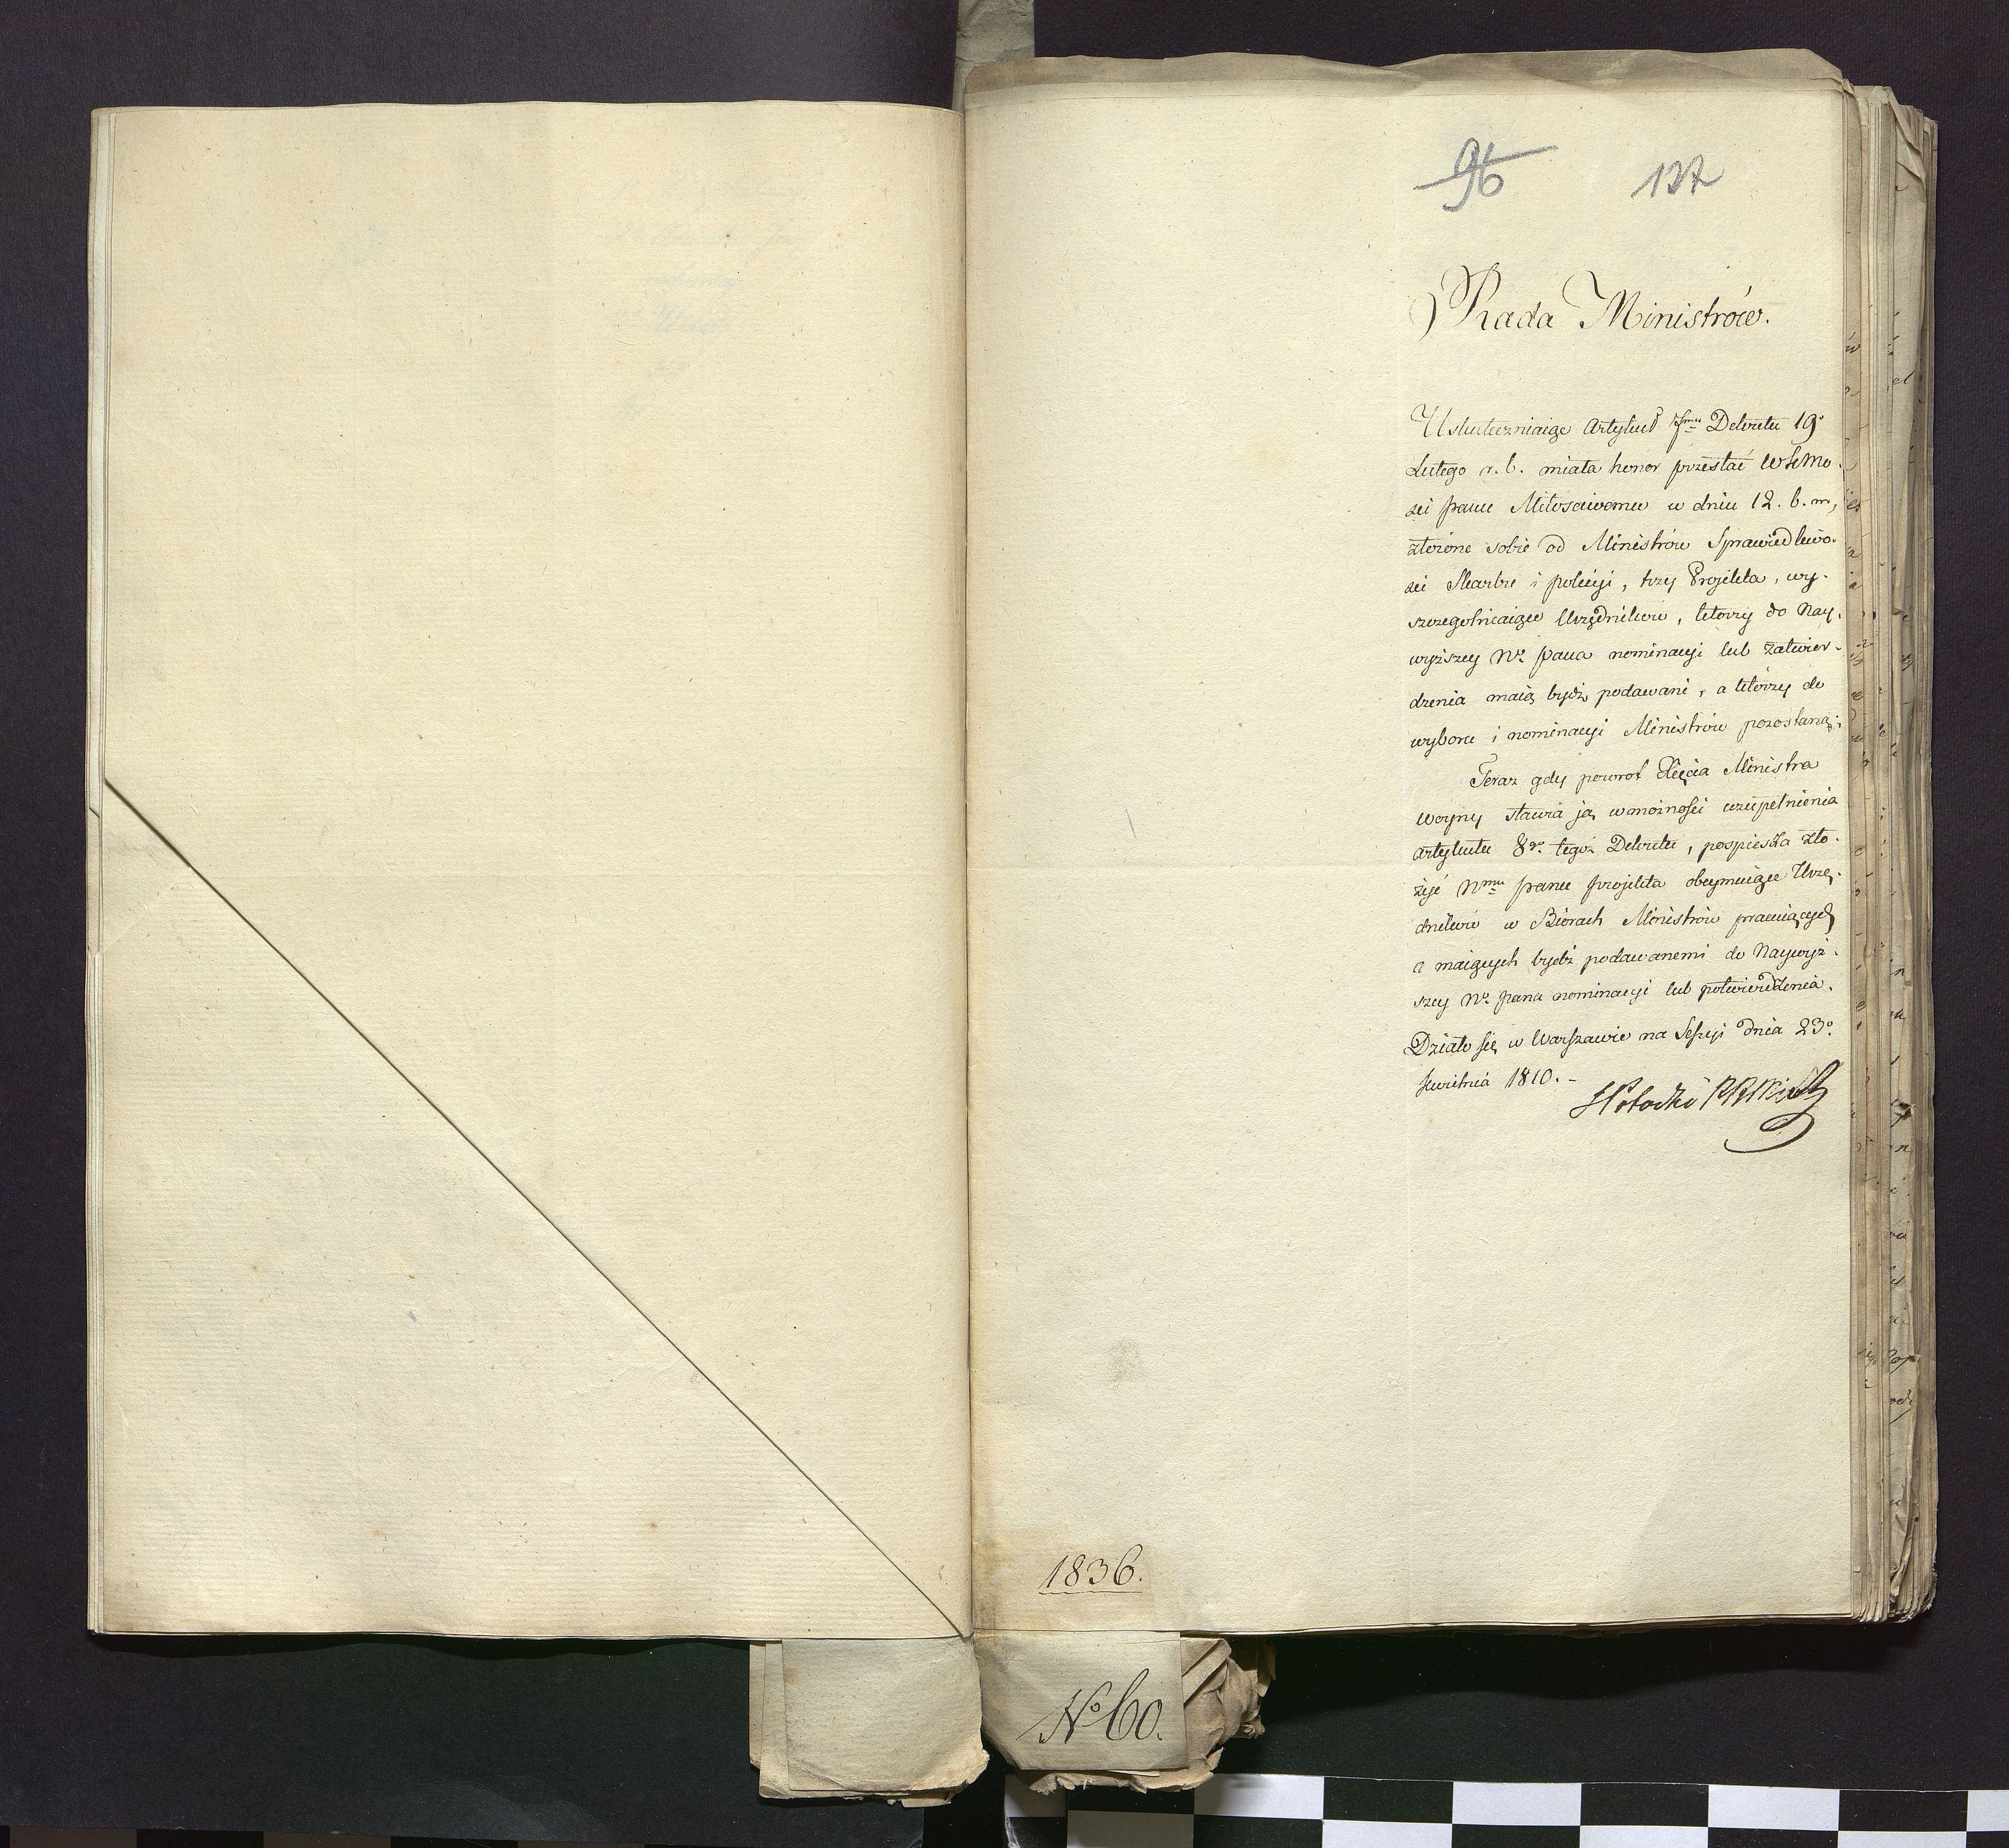 96 137
Rada Ministrów.
Uskuteczniaiąc Artykuł 7mu Dekretu 19o
Lutego r. b. miała honor przesłać WKMo.
ści panu Miłosciwemu w dniu 12. b. m,
złożone sobie od Ministrów Sprawiedliwo.
ści Skarbu i policyi, trzy Projekta, wy.
szczegolniaiące Urzędników, którzy do Nay.
wyższey No. pana nominacyi lub zatwier.
dzenia maią bydź podawani, a którzy do
wyboru i nominacyi Ministrów pozostaną;
Teraz gdy powrot Xięcia Ministra
woyny stawia ją w możności uzupełnienia
artykułu 8go. tegoż Dekretu, pospiesza zło.
żyć Nmu panu projekta obeymuiące Urzę.
dników w Biórach Ministrów pracuiących
a maiących bydź podawanemi do Naywyż.
szey No. pana nominacyi lub potwierdzenia.
Działo się w Warszawie na Sessyi dnia 23o.
kwietnia 1810. -
SPotocki
1836.
No 60.